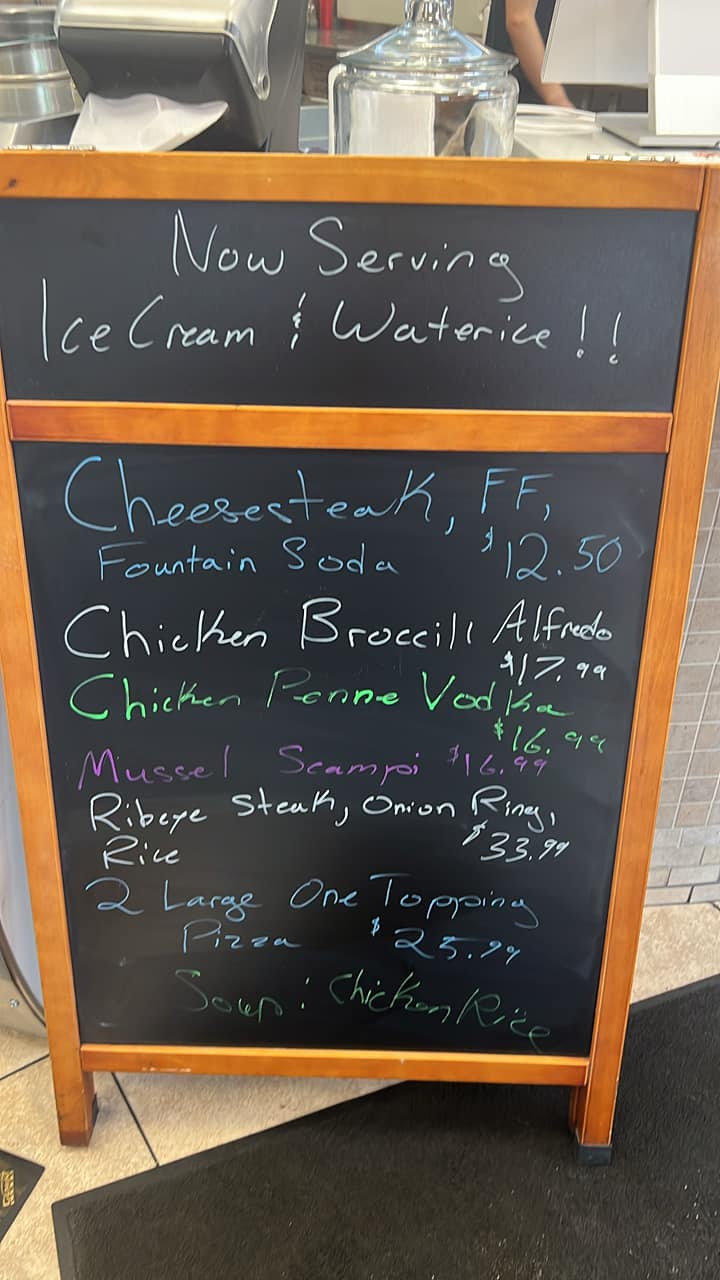 Now Serving
Ice Cream & Waterice!!
Cheesesteak, FF,
Fountain Soda $12.50
Chicken Broccili Alfredo
$17.99
Chicken Penne Vodka
$16.99
Mussel Scampi $16.99
Ribeye Steak, Onion Rings,
Rice $33.99
2 Large One Topping
Pizza $25.99
Soup: Chicken Rice